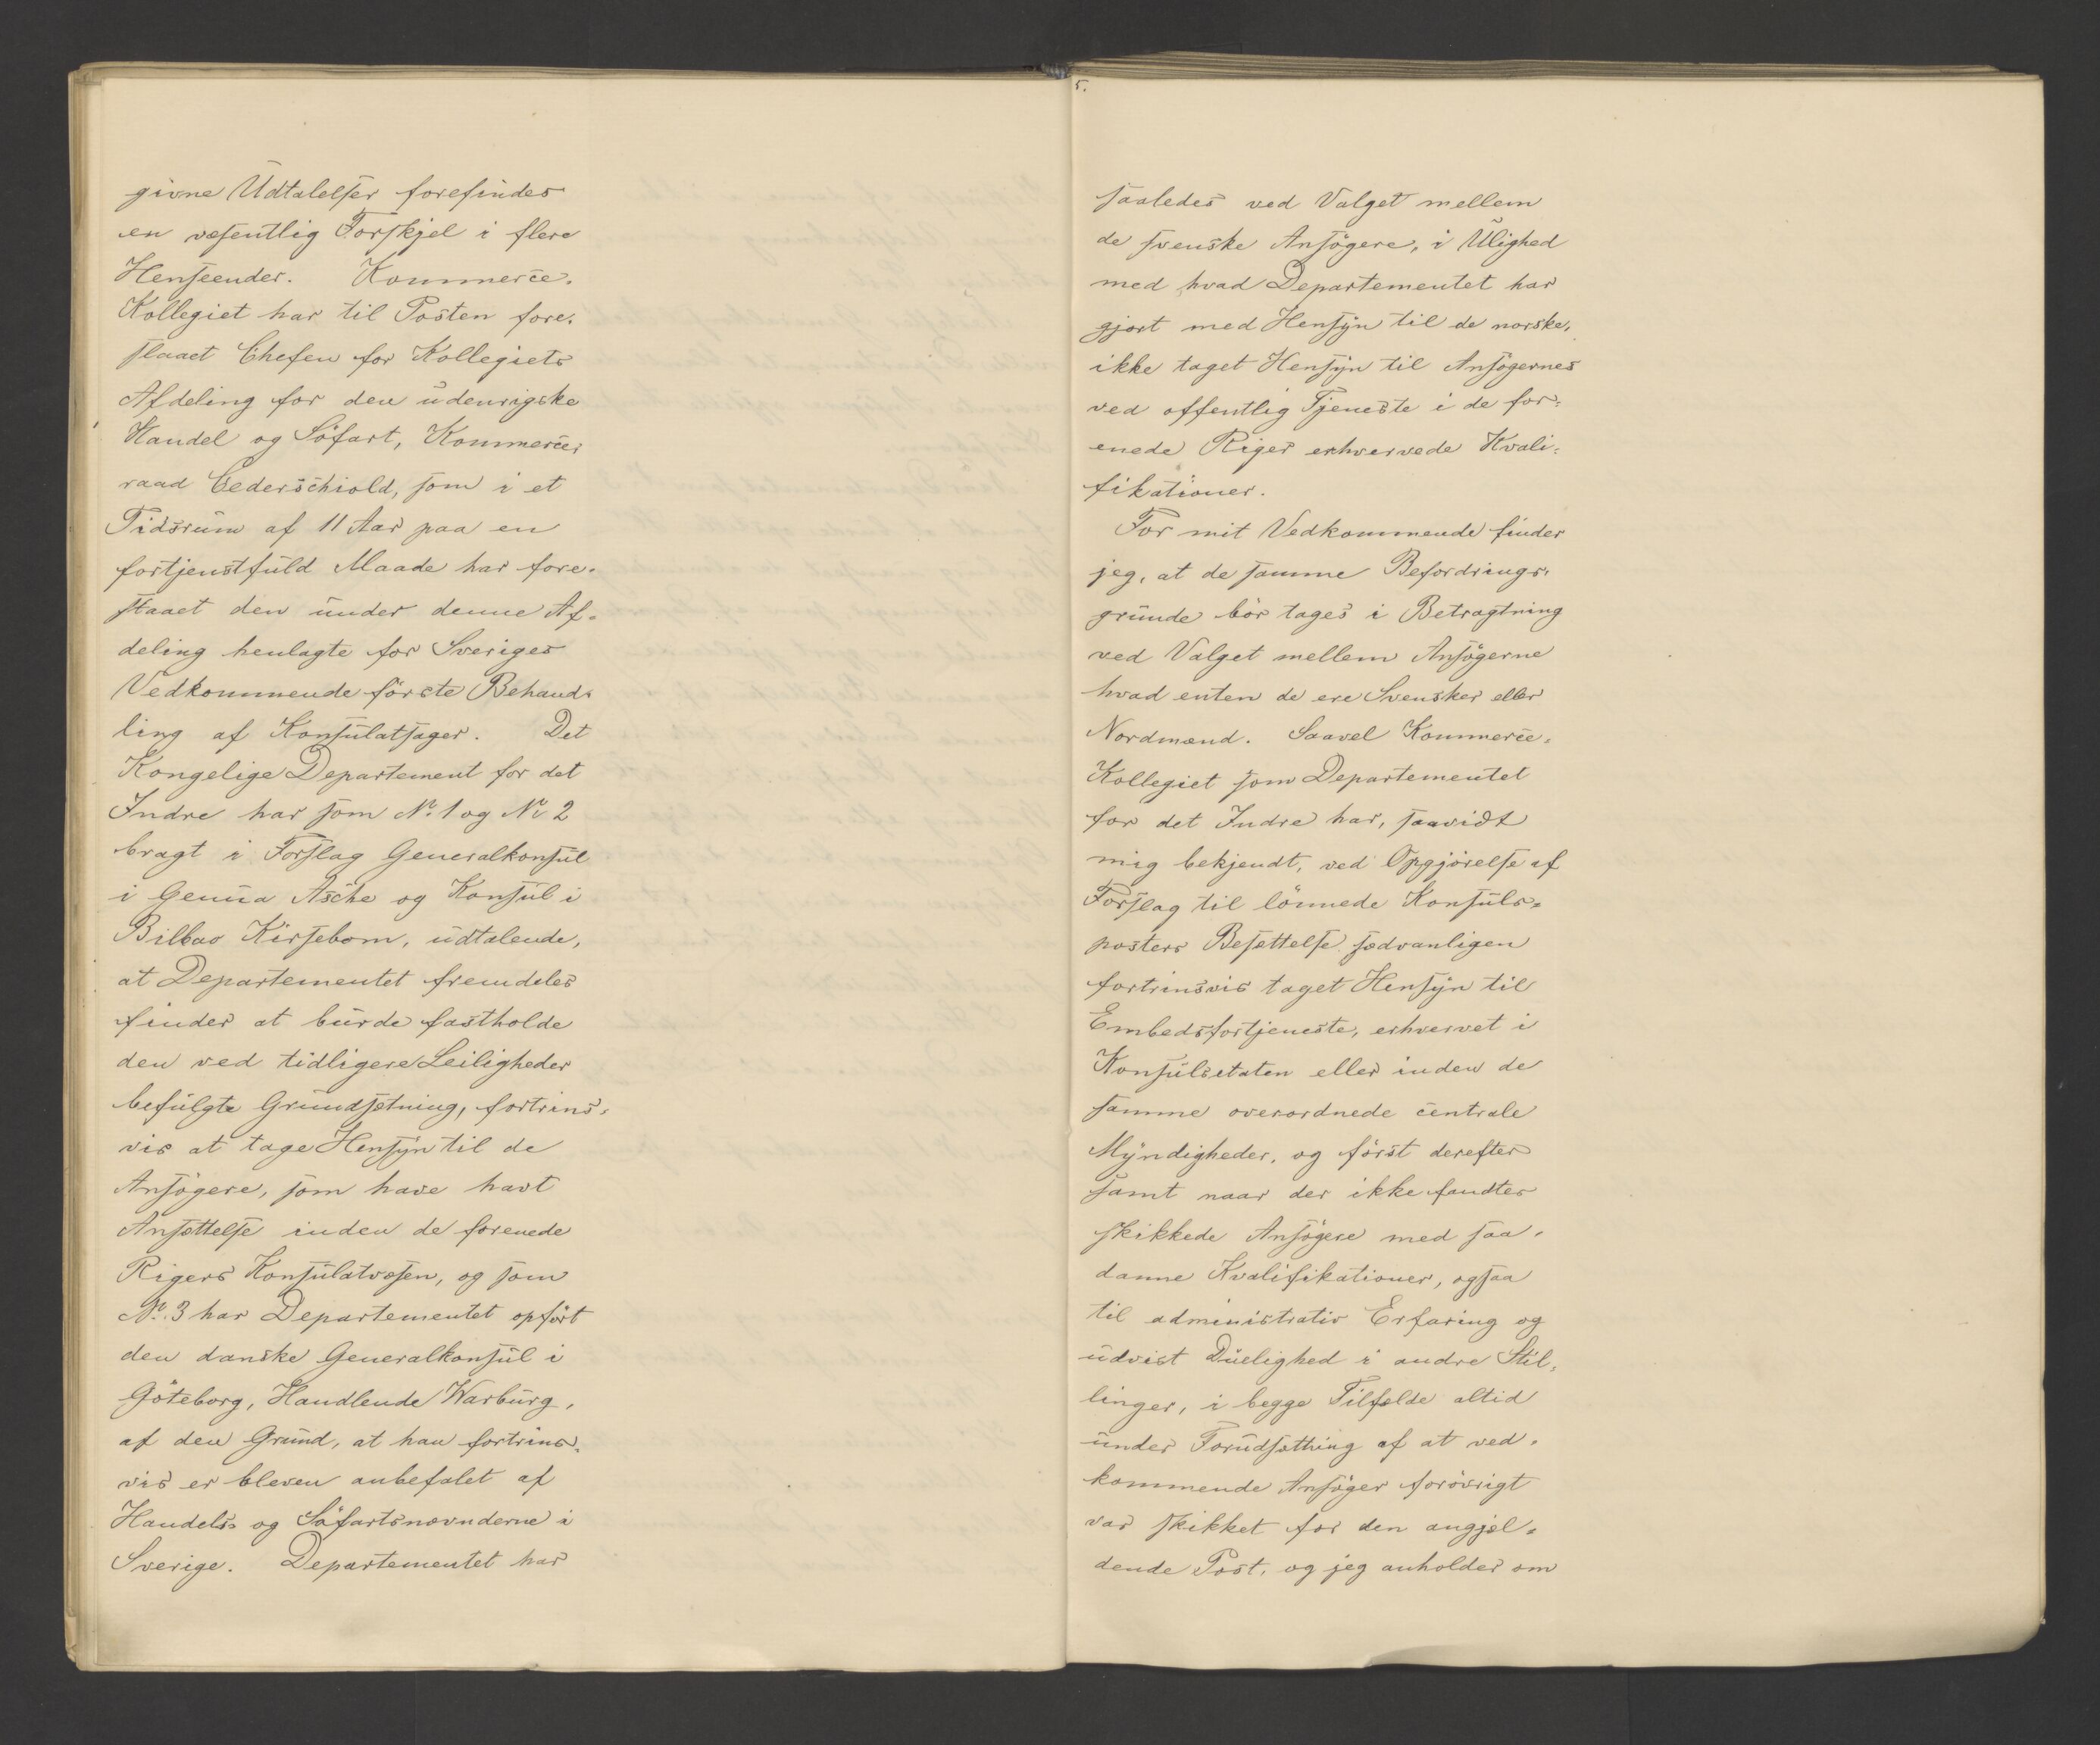 givne Udtalelser forefindes
en væsentlig Forskjel i flere
Henseender. Kommerce-
Kollegiet har til Posten fore-
slaaet Chefen for Kollegiets
Afdeling for den udenrigske
Handel og Söfart, Kommerce-
raad Cederschiold, som i et
Tidsrum af 11 Aar paa en
fortjenstfuld Maade har fore-
staaet den under denne Af-
deling henlagte for Sveriges
Vedkommende förste Behand-
ling af Konsulatsager. Det
Kongelige Departement for det
Indre har som No. 1 og No 2
bragt i Forslag Generalkonsul
i Genua Asche og Konsul i
Bilbao Kirsebom, udtalende,
at Departementet fremdeles
finder at burde fastholde
den ved tidligere Leiligheder
befulgte Grundsætning, fortrins-
vis at tage Hensyn til de
Ansögere, som have havt
Ansættelse inden de forenede
Rigers Konsulatvæsen, og som
No. 3 har Departementet opfört
den danske Generalkonsul i
Göteborg, Handlende Warburg,
af den Grund, at han fortrins-
vis er bleven anbefalet af
Handels- og Söfartsnævnderne i
Sverige. Departementet har
5.
saaledes ved Valget mellem
de svenske Ansögere, i Ulighed
med hvad Departementet har
gjort med Hensyn til de norske,
ikke taget Hensyn til Ansögernes
ved offentlig Tjeneste i de for-
enede Riger erhvervede Kvali-
fikationer.
For mit Vedkommende finder
jeg, at de samme Befordrings-
grunde bör tages i Betragtning
ved Valget mellem Ansögerne
hvad enten de ere Svensker eller
Nordmænd. Saavel Kommerce-
Kollegiet som Departementet
for det Indre har, saavidt
mig bekjendt, ved Opgjörelse af
Forslag til lönnede Konsuls-
posters Besættelse sædvanligen
fortrinsvis taget Hensyn til
Embedsfortjeneste, erhvervet i
Konsulsetaten eller inden de
samme overordnede centrale
Myndigheder, og först derefter
samt naar der ikke fandtes
skikkede Ansögere med saa-
danne Kvalifikationer, ogsaa
til administrativ Erfaring og
udvist Duelighed i andre Stil-
linger, i begge Tilfælde altid
under Forudsætning af at ved-
kommende Ansöger forövrigt
var skikket for den angjæl-
dende Post, og jeg anholder om